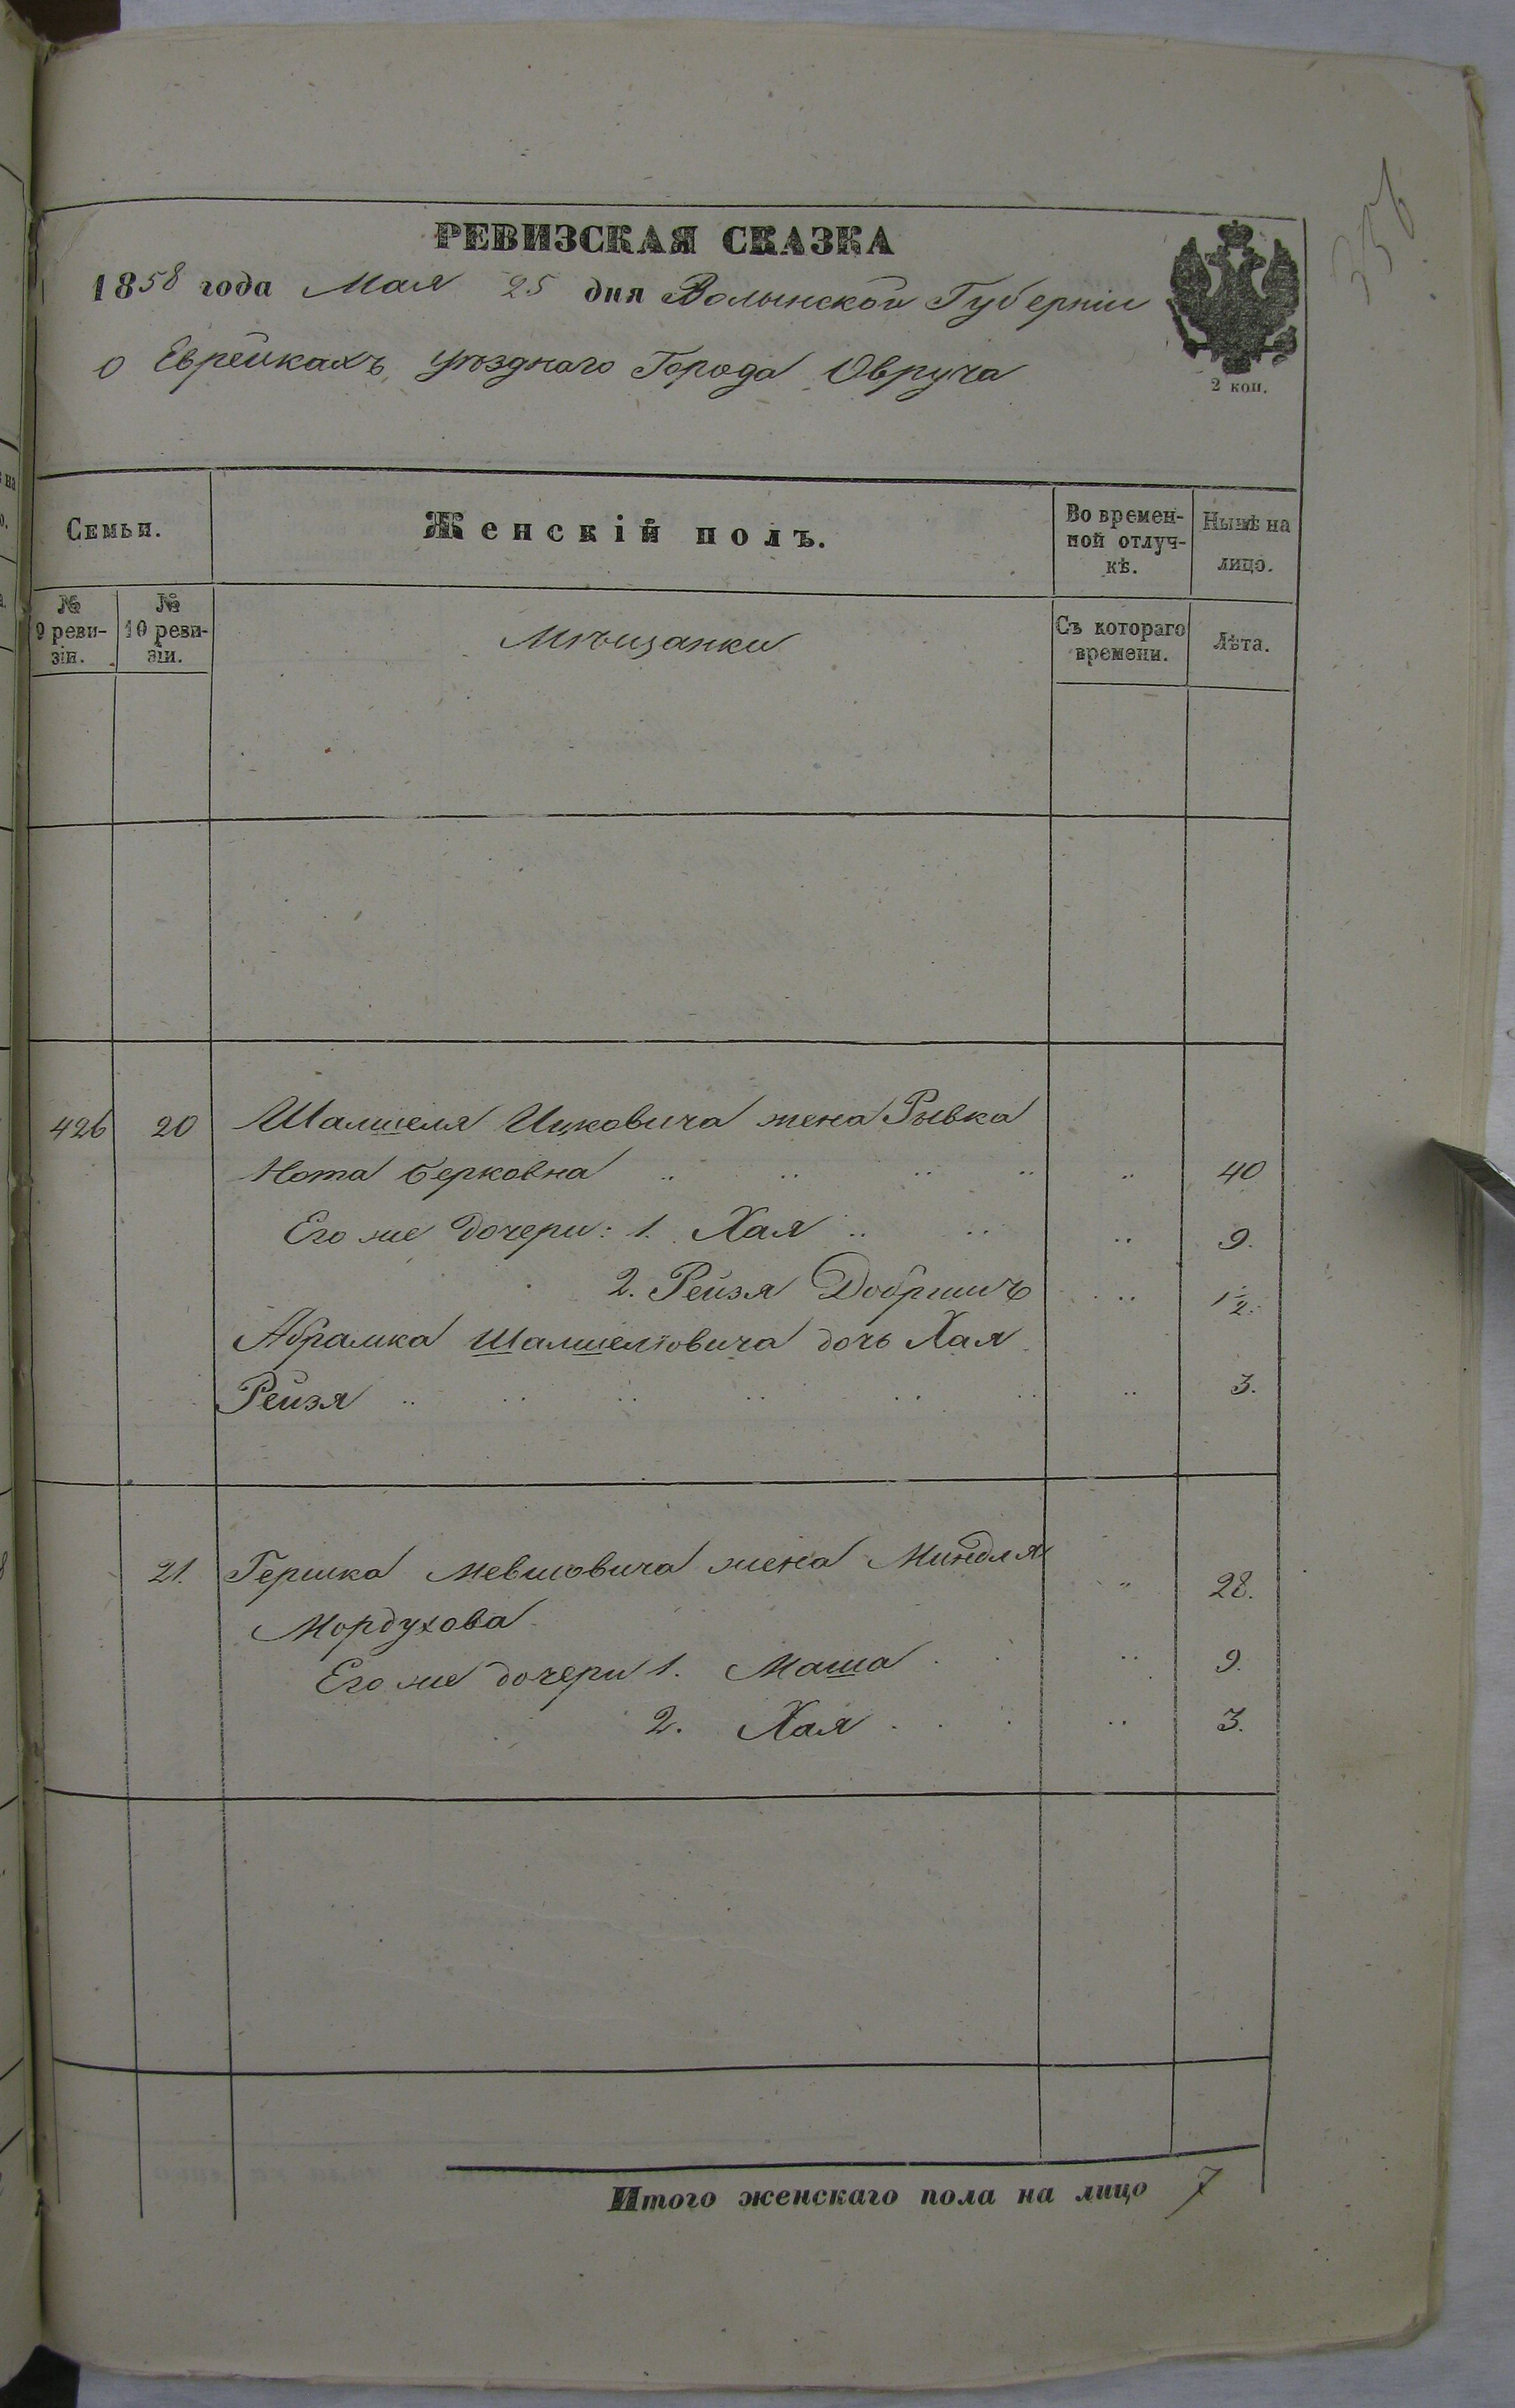 356
РЕВИЗСКАЯ СКАЗКА
1858 года Мая 25 дня Волынской Губерніи
о Еврейкахъ уѣзднаго Города Овруча
2 коп.
Семьи.
Женскій полъ.
Во времен-
ной отлуч-
кѣ.
Нынѣ на
лицо.
№
9 реви-
зіи.
№
10 реви-
зіи.
Мѣщанки
Съ котораго
времени.
Лѣта.
426 20 Шалшеля Ицковича жена Рывка
Нота Берковна .. .. .. .. .. 40
Его же дочери: 1. Хая .. .. .. 9.
2. Рейзя Добришъ .. 1/2.
Абрамка Шалшеліовича дочь Хая
Рейзя .. .. .. .. .. .. .. 3.
21. Гершка Мевшовича жена Миндля .. 28.
Мордухова
Его же дочери 1. Маша . . .. 9.
2. Хая . . . .. 3.
Итого женскаго пола на лицо 7